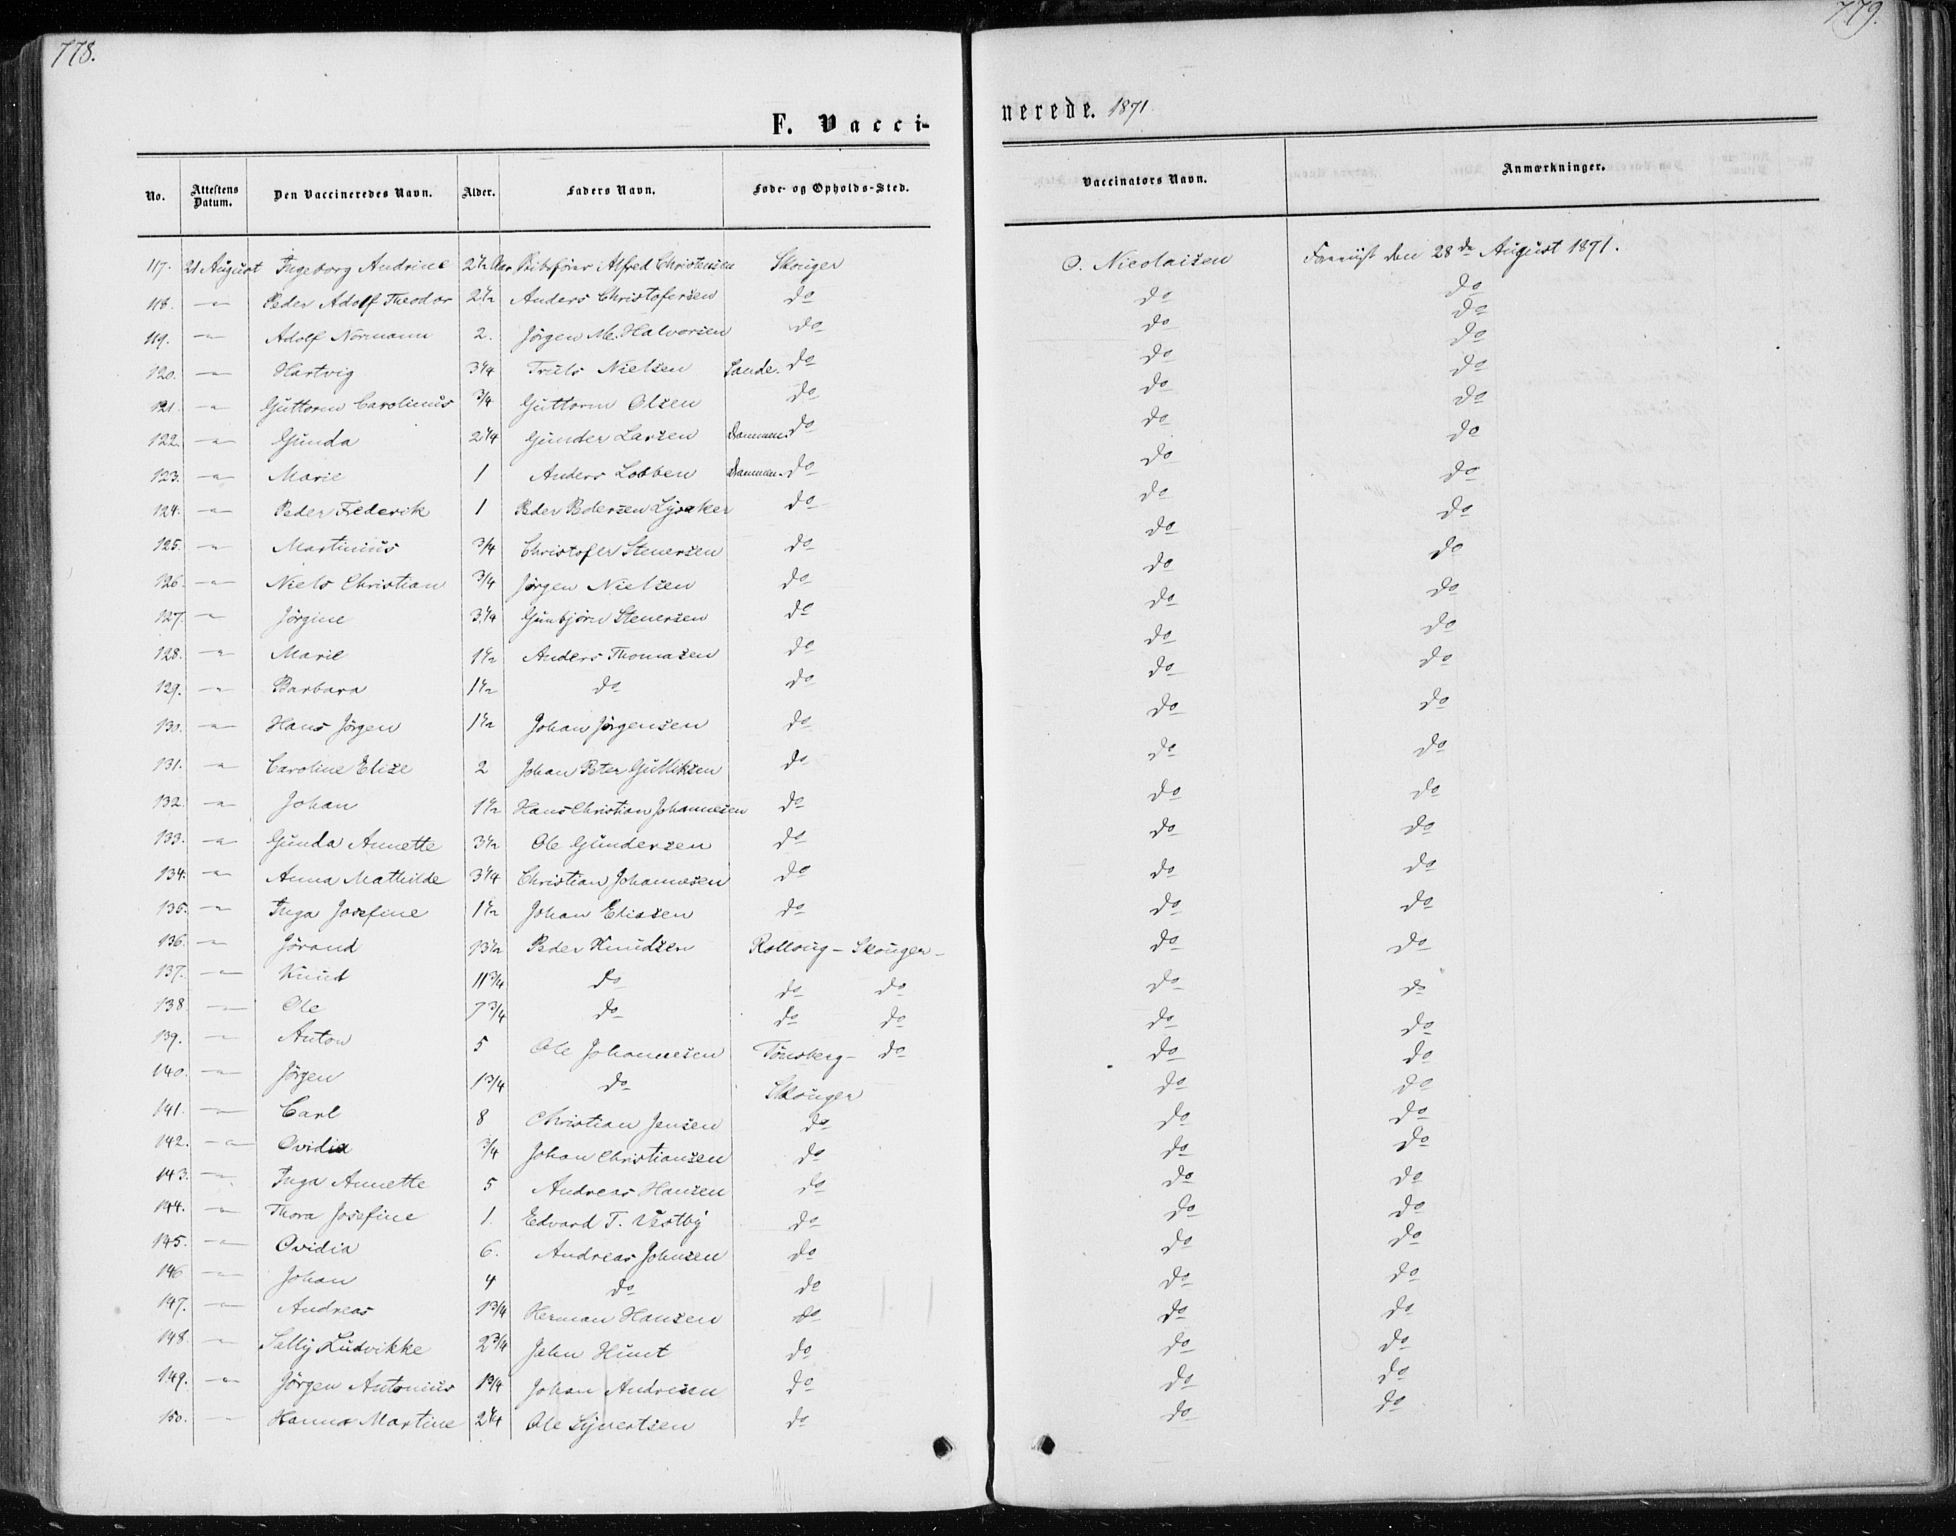 778.
779.
F. Vacci-
nerede. 1871.
No. Attestens Datum. Den Vaccineredes Navn. Alder. Faders Navn. Føde- og Opholds-Sted. Vaccinators Navn. Anmærkninger.
117. 21 August Ingeborg Andrine 2 1/2 Aar Alfred Christensen Skouger O. Nicolaisen den 28de August 1871.
118. -"- Peder Adolf Theodor 2 1/2 Anders Christofersen do do do
119. -"- Adolf Normann 2. Jørgen M. Halvorsen do do do
120. -"- Hartvig 3 1/4 Truls Nielsen Sande. do do do
121. -"- Guttorm Carolinus 3/4 Guttorm Olsen do do do
122. -"- Gunda 2 1/4 Gunder Larsen do do do
123. -"- Marie 1 Anders Lobben do do do
124. -"- Peder Frederik 1 Peder Pedersen Lysaker do do do
125. -"- Martinius 3/4 Christofer Stenersen do do do
126. -"- Niels Christian 3/4 Jørgen Nielsen do do do
127. -"- Jørgine 3 1/4 Gunbjørn Stenersen do do do
128. -"- Marie 1 1/2 Anders Thomasen do do do
129. -"- Barbara 1 1/2 do do do do
130. -"- Hans Jørgen 1 1/2 Johan Jørgensen do do do
131. -"- Caroline Elise 2 Johan Peter Gulliksen do do do
132. -"- Johan 1 1/2 Hans Christian Johannesen do do do
133. -"- Gunda Annette 3 1/2 Ole Gundersen do do do
134. -"- Anna Mathilde 3 1/4 Christian Johannesen do do do
135. -"- Inga Josefine 1 1/2 Johan Eliasen do do do
136. -"- Jørand 13 1/2 Peder Knudsen Rolloug - Skouger - do do
137. -"- Knud 11 3/4 do do do do do
138. -"- Ole 7 3/4 do do do do do
139. -"- Anton 5 Ole Johannesen Tønsberg - do do do
140. -"- Jørgen 1 3/4 do Skouger do do
141. -"- Carl 8 Christian Jensen do do do
142. -"- Ovidia 3/4 Johan Christiansen do do do
143. -"- Inga Annette 5 Andreas Hansen do do do
144. -"- Thora Josefine 1. Edvard T. Vestby do do do
145. -"- Ovidia 6. Andreas Johnsen do do do
146 -"- Johan 4 do do do do
147. -"- Andreas 1 3/4 Herman Hansen do do do
148. -"- Sally Ludvikke 2 3/4 John Hunt do do do
149. -"- Jørgen Antonius 1 3/4 Johan Andresen do do do
150. -"- Hanna Martine 2 1/4 Ole Syvertsen do do do